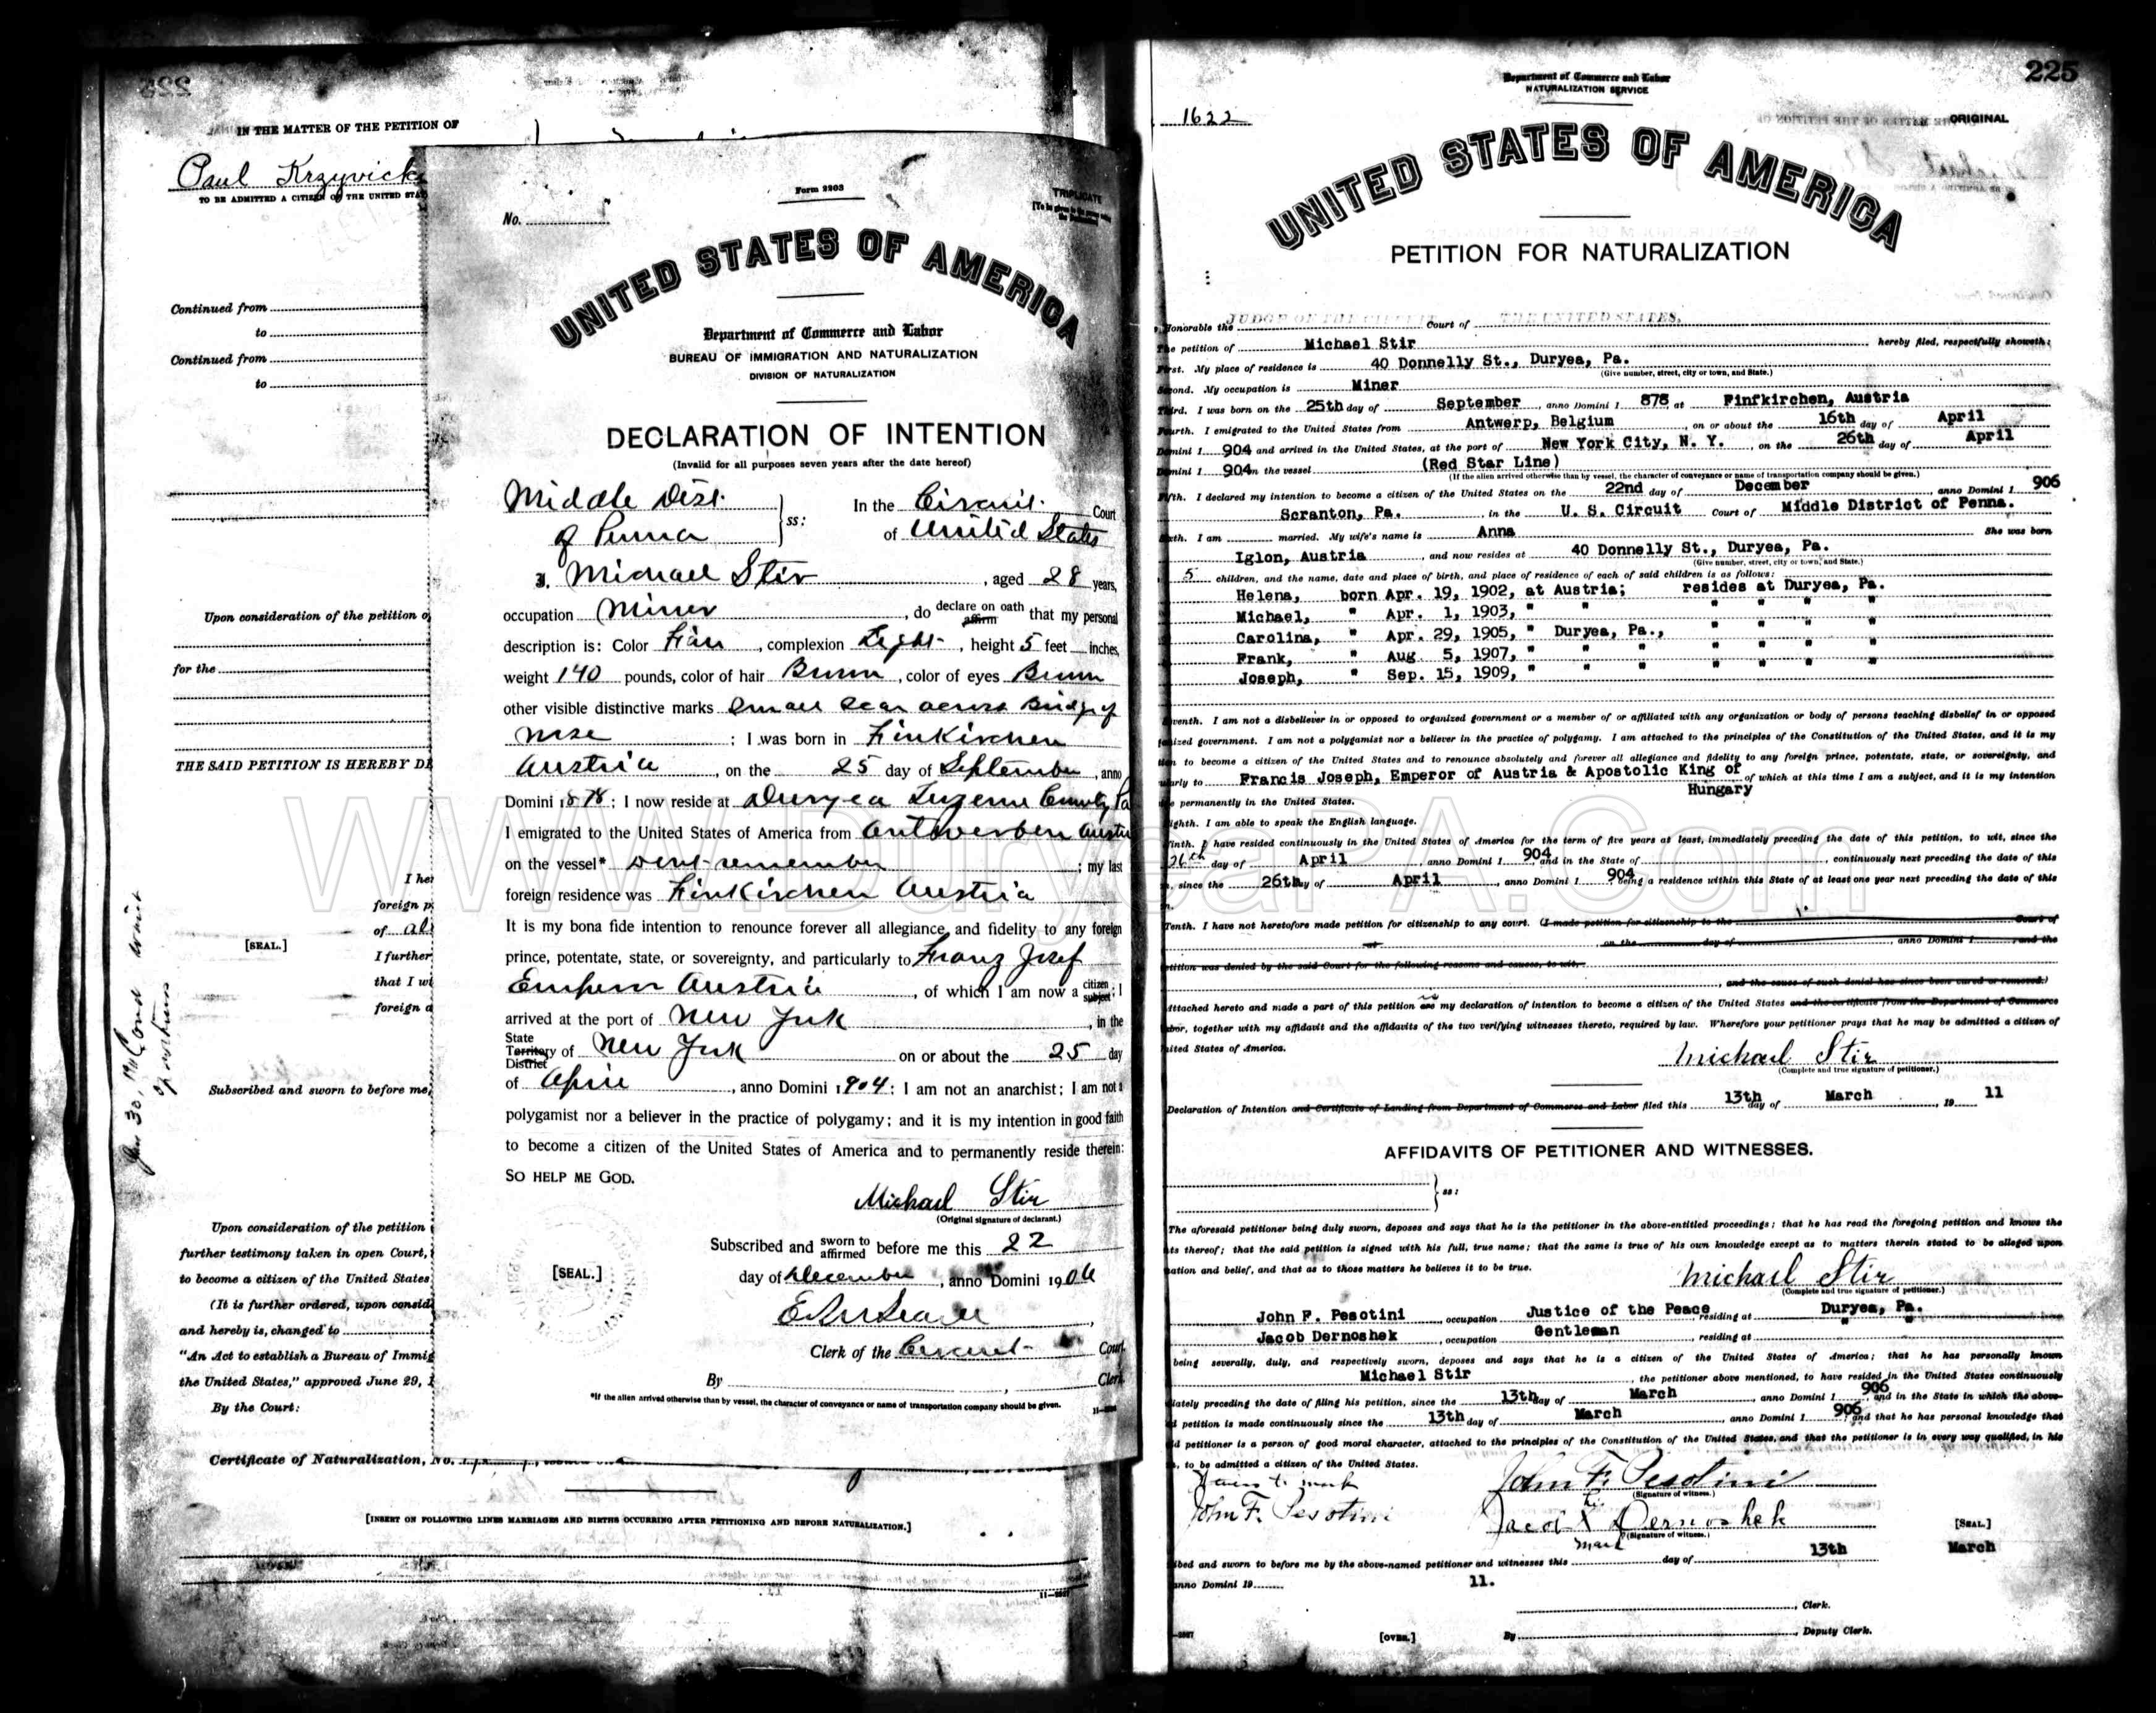 IN THE MATTER OF THE PETITION OF
Paul Krzywick
TO BE ADMITTED A CITIZEN OF THE UNITED STA
Continued from
to
Continued from
to
Upon consideration of the petition o
for the
THE SAID PETITION IS HEREBY DE
I her
foreign p
of
[SEAL.]
I further
that I wi
foreign a
Subscribed and sworn to before me,
Upon consideration of the petition
further testimony taken in open Court,
to become a citizen of the United States
(It is further ordered, upon consid
and hereby is, changed to
"An Act to establish a Bureau of Immig
the United States," approved June 29, 1
By the Court:
Certificate of Naturalization, No.
[INSERT ON FOLLOWING LINES MARRIAGES AND BIRTHS OCCURRING AFTER PETITIONING AND BEFORE NATURALIZATION.]
Form 2203
TRIPLICATE
No.
UNITED STATES OF AMERICA
Department of Commerce and Labor
BUREAU OF IMMIGRATION AND NATURALIZATION
DIVISION OF NATURALIZATION
DECLARATION OF INTENTION
(Invalid for all purposes seven years after the date hereof)
Middle Dist. In the Circuit Court
of Penna ss: of United States
I, Michael Stir, aged 28 years,
occupation Miner, do declare on oath affirm that my personal
description is: Color Fair, complexion Light, height 5 feet inches,
weight 140 pounds, color of hair Brown, color of eyes Brown
other visible distinctive marks Small scar across Bridge of
nose; I was born in Finkirchen
Austria, on the 25 day of September, anno
Domini 1878; I now reside at Duryea Luzerne County Pa
I emigrated to the United States of America from Antwerben Austr
on the vessel* Dont remember; my last
foreign residence was Finkirchen Austria
It is my bona fide intention to renounce forever all allegiance and fidelity to any foreign
prince, potentate, state, or sovereignty, and particularly to Franz Josef
Emperor Austria, of which I am now a citizen subject; I
arrived at the port of New York, in the
State Territory District of New York on or about the 25 day
of April, anno Domini 1904; I am not an anarchist; I am not a
polygamist nor a believer in the practice of polygamy; and it is my intention in good faith
to become a citizen of the United States of America and to permanently reside therein:
SO HELP ME GOD.
Michael Stir
(Original signature of declarant.)
Subscribed and sworn to affirmed before me this 22
[SEAL.] day of December, anno Domini 1906
Clerk of the Circuit Court.
By , Clerk.
*If the alien arrived otherwise than by vessel, the character of conveyance or name of transportation company should be given.
225
Department of Commerce and Labor
NATURALIZATION SERVICE
1622
ORIGINAL
UNITED STATES OF AMERICA
PETITION FOR NATURALIZATION
Honorable the JUDGE OF THE CIRCUIT Court of THE UNITED STATES.
The petition of Michael Stir hereby filed, respectfully showeth:
First. My place of residence is 40 Donnelly St., Duryea, Pa.
(Give number, street, city or town, and State.)
Second. My occupation is Miner
Third. I was born on the 25th day of September, anno Domini 1 878 at Finfkirchen, Austria
Fourth. I emigrated to the United States from Antwerp, Belgium, on or about the 16th day of April
Domini 1 904 and arrived in the United States, at the port of New York City, N. Y. on the 26th day of April
Domini 1 904 on the vessel (Red Star Line)
(If the alien arrived otherwise than by vessel, the character of conveyance or name of transportation company should be given.)
Fifth. I declared my intention to become a citizen of the United States on the 22nd day of December, anno Domini 1 906
Scranton, Pa. in the U. S. Circuit Court of Middle District of Penna.
Sixth. I am married. My wife's name is Anna She was born
Iglon, Austria, and now resides at 40 Donnelly St., Duryea, Pa.
(Give number, street, city or town, and State.)
5 children, and the name, date and place of birth, and place of residence of each of said children is as follows:
Helena, born Apr. 19, 1902, at Austria; resides at Duryea, Pa.
Michael, " Apr. 1, 1903, " " " " " "
Carolina, " Apr. 29, 1905, " Duryea, Pa., " " " "
Frank, " Aug. 5, 1907, " " " " " " "
Joseph, " Sep. 15, 1909, " " " " " " "
Seventh. I am not a disbeliever in or opposed to organized government or a member of or affiliated with any organization or body of persons teaching disbelief in or opposed
ganized government. I am not a polygamist nor a believer in the practice of polygamy. I am attached to the principles of the Constitution of the United States, and it is my
tion to become a citizen of the United States and to renounce absolutely and forever all allegiance and fidelity to any foreign prince, potentate, state, or sovereignty, and
ularly to Francis Joseph, Emperor of Austria & Apostolic King of Hungary of which at this time I am a subject, and it is my intention
permanently in the United States.
Eighth. I am able to speak the English language.
Ninth. I have resided continuously in the United States of America for the term of five years at least, immediately preceding the date of this petition, to wit, since the
26th day of April, anno Domini 1 904 and in the State of , continuously next preceding the date of this
n, since the 26th day of April, anno Domini 1 904, being a residence within this State of at least one year next preceding the date of this
Tenth. I have not heretofore made petition for citizenship to any court. (I made petition for citizenship to the Court of
at , on the day of , anno Domini 1 , and the
petition was denied by the said Court for the following reasons and causes, to wit,
, and the cause of such denial has since been cured or removed.)
Attached hereto and made a part of this petition are is my declaration of intention to become a citizen of the United States and the certificate from the Department of Commerce
abor, together with my affidavit and the affidavits of the two verifying witnesses thereto, required by law. Wherefore your petitioner prays that he may be admitted a citizen of
United States of America.
Michael Stir
(Complete and true signature of petitioner.)
Declaration of Intention and Certificate of Landing from Department of Commerce and Labor filed this 13th day of March, 19 11
AFFIDAVITS OF PETITIONER AND WITNESSES.
ss:
The aforesaid petitioner being duly sworn, deposes and says that he is the petitioner in the above-entitled proceedings; that he has read the foregoing petition and knows the
nts thereof; that the said petition is signed with his full, true name; that the same is true of his own knowledge except as to matters therein stated to be alleged upon
mation and belief, and that as to those matters he believes it to be true.
Michael Stir
(Complete and true signature of petitioner.)
John F. Pesotini, occupation Justice of the Peace, residing at Duryea, Pa.
Jacob Dernoshek, occupation Gentleman, residing at " "
being severally, duly, and respectively sworn, deposes and says that he is a citizen of the United States of America; that he has personally known
Michael Stir, the petitioner above mentioned, to have resided in the United States continuously
iately preceding the date of filing his petition, since the 13th day of March anno Domini 1 906, and in the State in which the above-
d petition is made continuously since the 13th day of March, anno Domini 1 906, and that he has personal knowledge that
id petitioner is a person of good moral character, attached to the principles of the Constitution of the United States, and that the petitioner is in every way qualified, in his
, to be admitted a citizen of the United States.
John F. Pesotini
(Signature of witness.)
John F. Pesotini
Jacob X Dernoshek
his
mark
(Signature of witness.)
[SEAL.]
ibed and sworn to before me by the above-named petitioner and witnesses this day of 13th March
anno Domini 19 11.
, Clerk.
[OVER.] By , Deputy Clerk.
www.DuryeaPA.Com